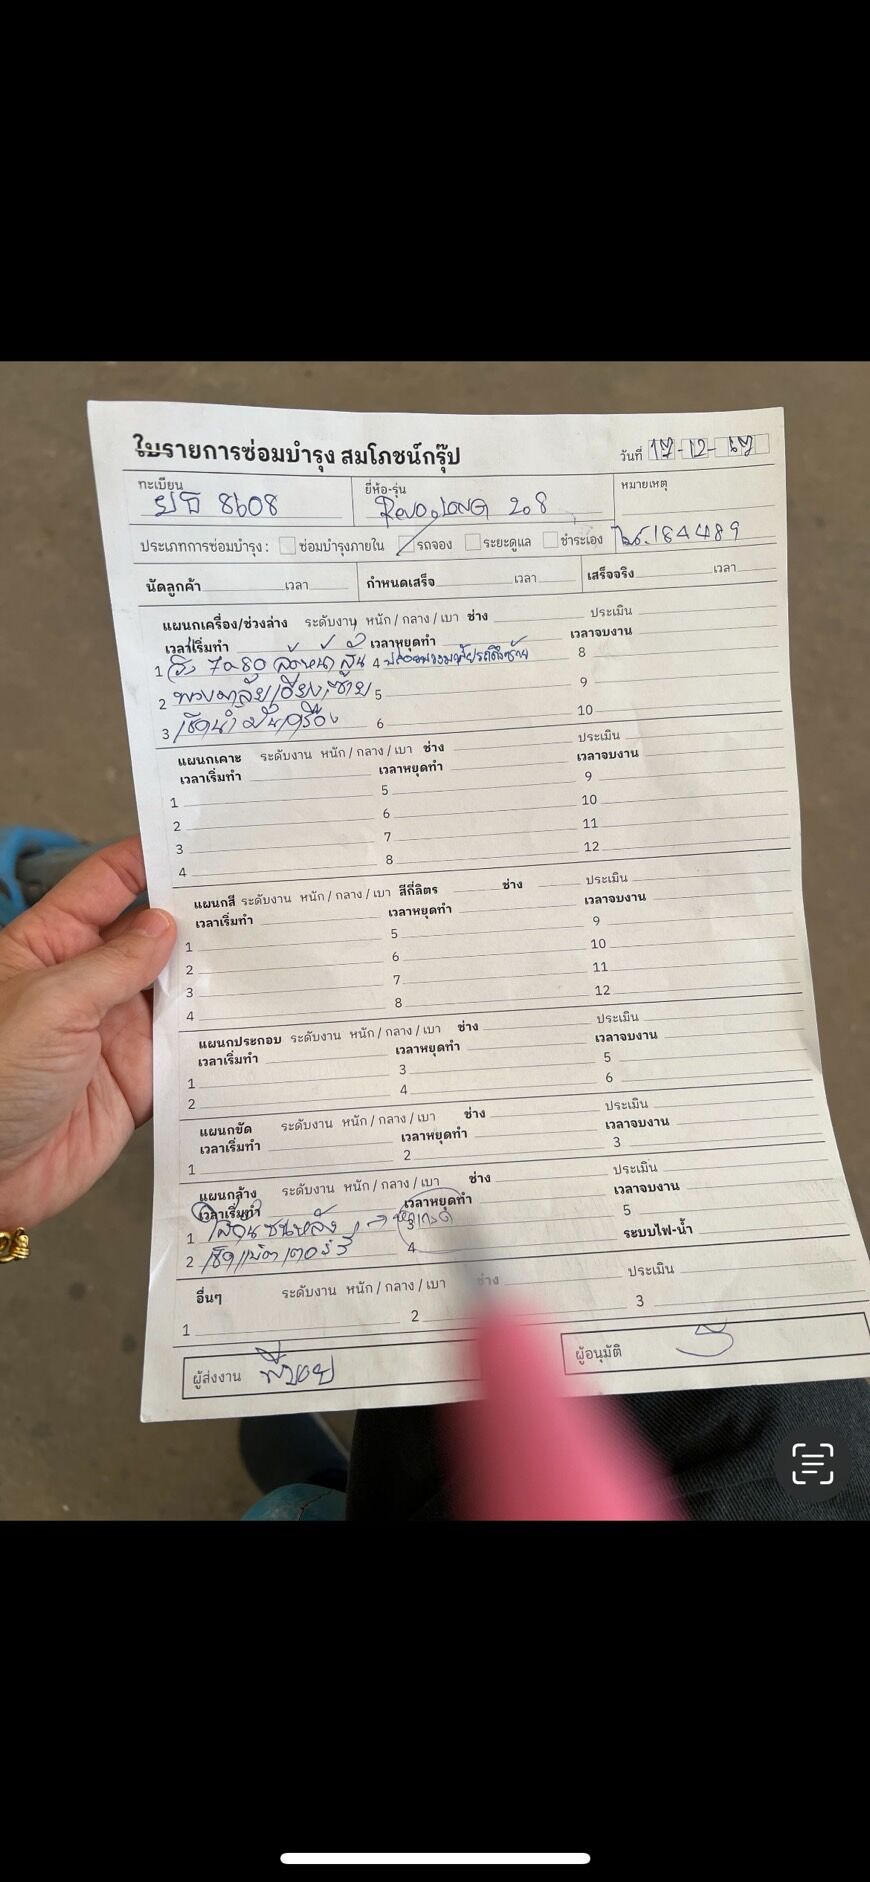 ใบรายการซ่อมบำรุง สมโภชน์กรุ๊ป
วันที่ 17-12-67
ทะเบียน ยี่ห้อ-รุ่น หมายเหตุ
8608 Revo LONG 208
ประเภทการซ่อมบำรุง : ซ่อมบำรุงภายใน รถจอง ระยะดูแล ชำระเอง 184489
นัดลูกค้า เวลา กำหนดเสร็จ เวลา เสร็จจริง เวลา
แผนกเครื่อง/ช่วงล่าง ระดับงาน หนัก / กลาง / เบา ช่าง ประเมิน
เวลาเริ่มทำ เวลาหยุดทำ เวลาจบงาน
1 วิ่ง 70-80 ล้อหน้า สั่น 4 ปล่อยพวงมาลัยรถดึงซ้าย 8
2 พวงมาลัยเอียงซ้าย 5 9
3 เช็คน้ำมันเครื่อง 6 10
แผนกเคาะ ระดับงาน หนัก / กลาง / เบา ช่าง ประเมิน
เวลาเริ่มทำ เวลาหยุดทำ เวลาจบงาน
1 5 9
2 6 10
3 7 11
4 8 12
แผนกสี ระดับงาน หนัก / กลาง / เบา สีกี่ลิตร ช่าง ประเมิน
เวลาเริ่มทำ เวลาหยุดทำ เวลาจบงาน
1 5 9
2 6 10
3 7 11
4 8 12
แผนกประกอบ ระดับงาน หนัก / กลาง / เบา ช่าง ประเมิน
เวลาเริ่มทำ เวลาหยุดทำ เวลาจบงาน
1 3 5
2 4 6
แผนกขัด ระดับงาน หนัก / กลาง / เบา ช่าง ประเมิน
เวลาเริ่มทำ เวลาหยุดทำ เวลาจบงาน
1 2 3
แผนกล้าง ระดับงาน หนัก / กลาง / เบา ช่าง ประเมิน
เวลาเริ่มทำ เวลาหยุดทำ เวลาจบงาน
1 3 5
2 เช็คแบตเตอรี่ 4 ระบบไฟ-น้ำ
อื่นๆ ระดับงาน หนัก / กลาง / เบา ช่าง ประเมิน
1 2 3
ผู้ส่งงาน ผู้อนุมัติ